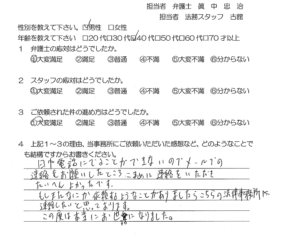 担当者 弁護士 眞中忠治
担当者 法務スタッフ 古館
性別を教えて下さい。 ☑男性 □女性
年齢を教えて下さい □20代□30代☑40代□50代□60代□70才以上
1 弁護士の応対はどうでしたか。
①大変満足 ②満足 ③普通 ④不満 ⑤大変不満 ⑥分からない
2 スタッフの応対はどうでしたか。
①大変満足 ②満足 ③普通 ④不満 ⑤大変不満 ⑥分からない
3 ご依頼された件の進め方はどうでしたか。
①大変満足 ②満足 ③普通 ④不満 ⑤大変不満 ⑥分からない
4 上記1~3の理由、当事務所にご依頼いただいた感想など、どのようなことで
も結構ですからお書きください。
日中電話にでることができないのでメールでの
連絡をお願いしたところ こまめに連絡をいただき
たいへんよかったです。
もしまたなにか依頼するようなことがありましたらこちらの法律事務所に
連絡したいと思っております。
この度は本当にお世話になりました。